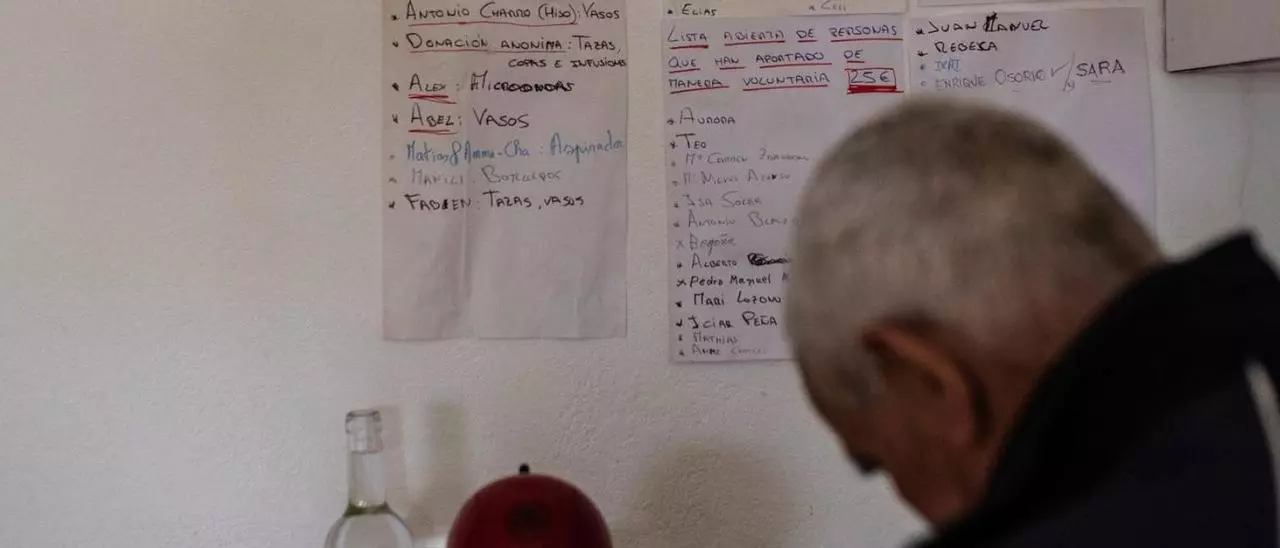 * ANTONIO CHARRO (HIJO): VASOS
* DONACIÓN ANONIMA: TAZAS,
COPAS E INFUSIONS
* ALEX: MICROONDAS
* ABEL: VASOS
* Matias & Anne-Cha: Aspirador
* MARILI:
* FABIEN: TAZAS, VASOS
* ELIAS
LISTA ABIERTA DE PERSONAS
QUE HAN APORTADO DE
MANERA VOLUNTARIA 25€
* AURORA
* TEO
* Mª CARMEN
* Mª
* ISA SOLER
* ANTONIO
* Begoña
* ALBERTO
* PEDRO MANUEL
* MARI LOZANO
* ICIAR PEÑA
* MATHIAS
* ANNE
* JUAN MANUEL
* REBECA
* ENRIQUE OSORIO Y SARA